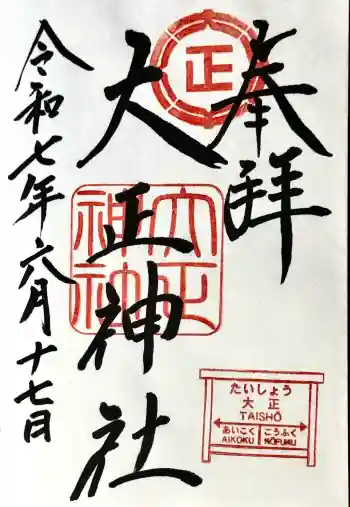 奉拝
大正
大正神社
大正神社
令和七年六月十七日
たいしょう
大正
TAISHŌ
あいこく こうふく
AIKOKU KŌFUKU